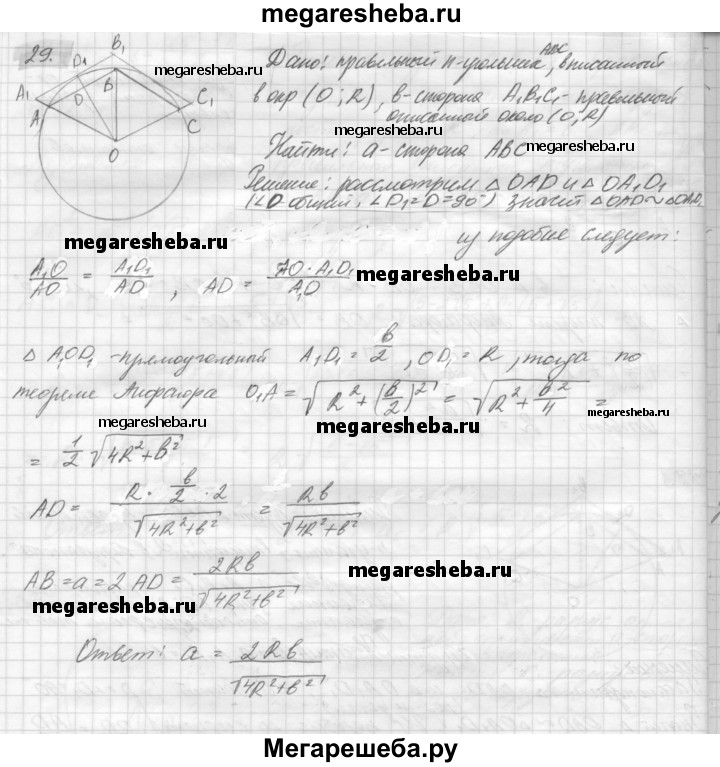 megaresheba.ru
29.
B₁
D₁
B
A₁
D
C₁
A
C
O
Дано: правельный n-угольник ABC, вписанный
megaresheba.ru
в окр (O; R), b-сторона A₁B₁C₁- правельный
описанный около (O; R)
megaresheba.ru
Найти: a-сторона ABC
megaresheba.ru
Решение: рассмотрим △ OAD и △ OA₁D₁
(∠O общий, ∠D₁=D=90°) значит △OAD~△OA₁D₁
megaresheba.ru
из подобие следует:
A₁O/AO = A₁D₁/AD , AD = AO·A₁D₁/A₁O
megaresheba.ru
△ A₁OD₁ -прямоугольный A₁D₁= b/2 , OD₁=R, тогда по
теореме Пифагора O₁A = √(R²+(b/2)²) = √(R²+b²/4) =
megaresheba.ru
megaresheba.ru
megaresheba.ru
= 1/2 √(4R²+b²)
AD= (R · b/2 · 2)/√(4R²+b²) = Rb/√(4R²+b²)
AB=a=2AD= 2Rb/√(4R²+b²)
megaresheba.ru
megaresheba.ru
Ответ: a = 2Rb/√(4R²+b²)
Мегарешеба.ру